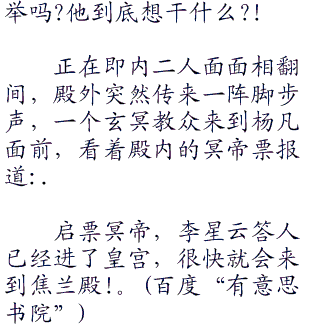 举吗?他到底想干什么?!
正在即内二人面面相翻
间，殿外突然传来一阵脚步
声，一个玄冥教众来到杨凡
面前，看着殿内的冥帝票报
道:.
启票冥帝，李星云答人
已经进了皇宫，很快就会来
到焦兰殿!。(百度“有意思
书院”)